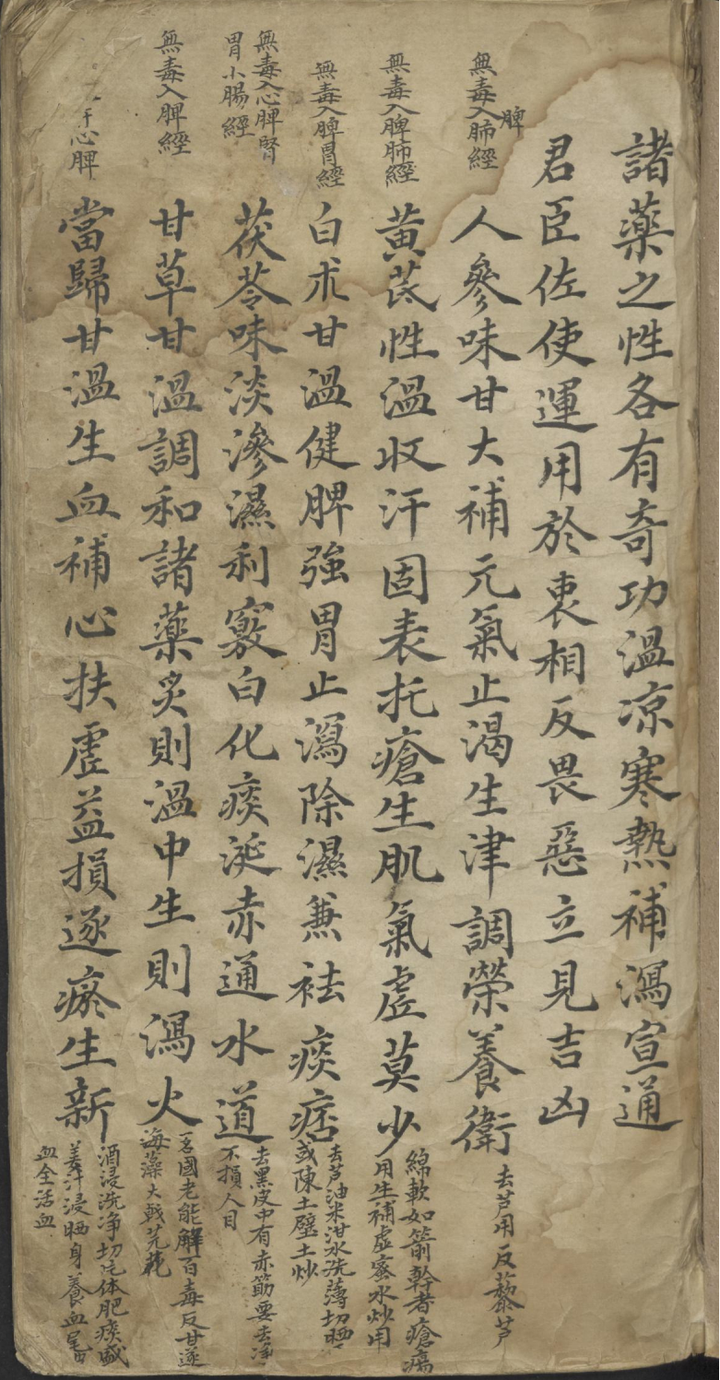 諸藥之性各有奇功溫凉寒熱補瀉宣通
君臣佐使運用於衷相反畏惡立見吉凶
脾
無毒入肺經
人參味甘大補元氣止渴生津調榮養衛
去芦用反藜芦
無毒入脾肺經
黄芪性溫收汗固表托瘡生肌氣虛莫少
綿軟如箭幹者瘡瘍
用生補虛蜜水炒用
無毒入脾胃經
白朮甘溫健脾強胃止瀉除濕兼袪痰痞
去芦油米泔水洗薄切晒
或陳土壁土炒
無毒入心脾腎
胃小腸經
茯苓味淡滲濕利竅白化痰涎赤通水道
去黑皮中有赤筋要去净
不損人目
無毒入脾經
甘草甘溫調和諸藥炙則溫中生則瀉火
一名國老能解百毒反甘遂
海藻大戟芫花
心脾
當歸甘溫生血補心扶虛益損逐瘀生新
酒浸洗净切片体肥痰盛
姜汁浸晒身養血尾
血全活血